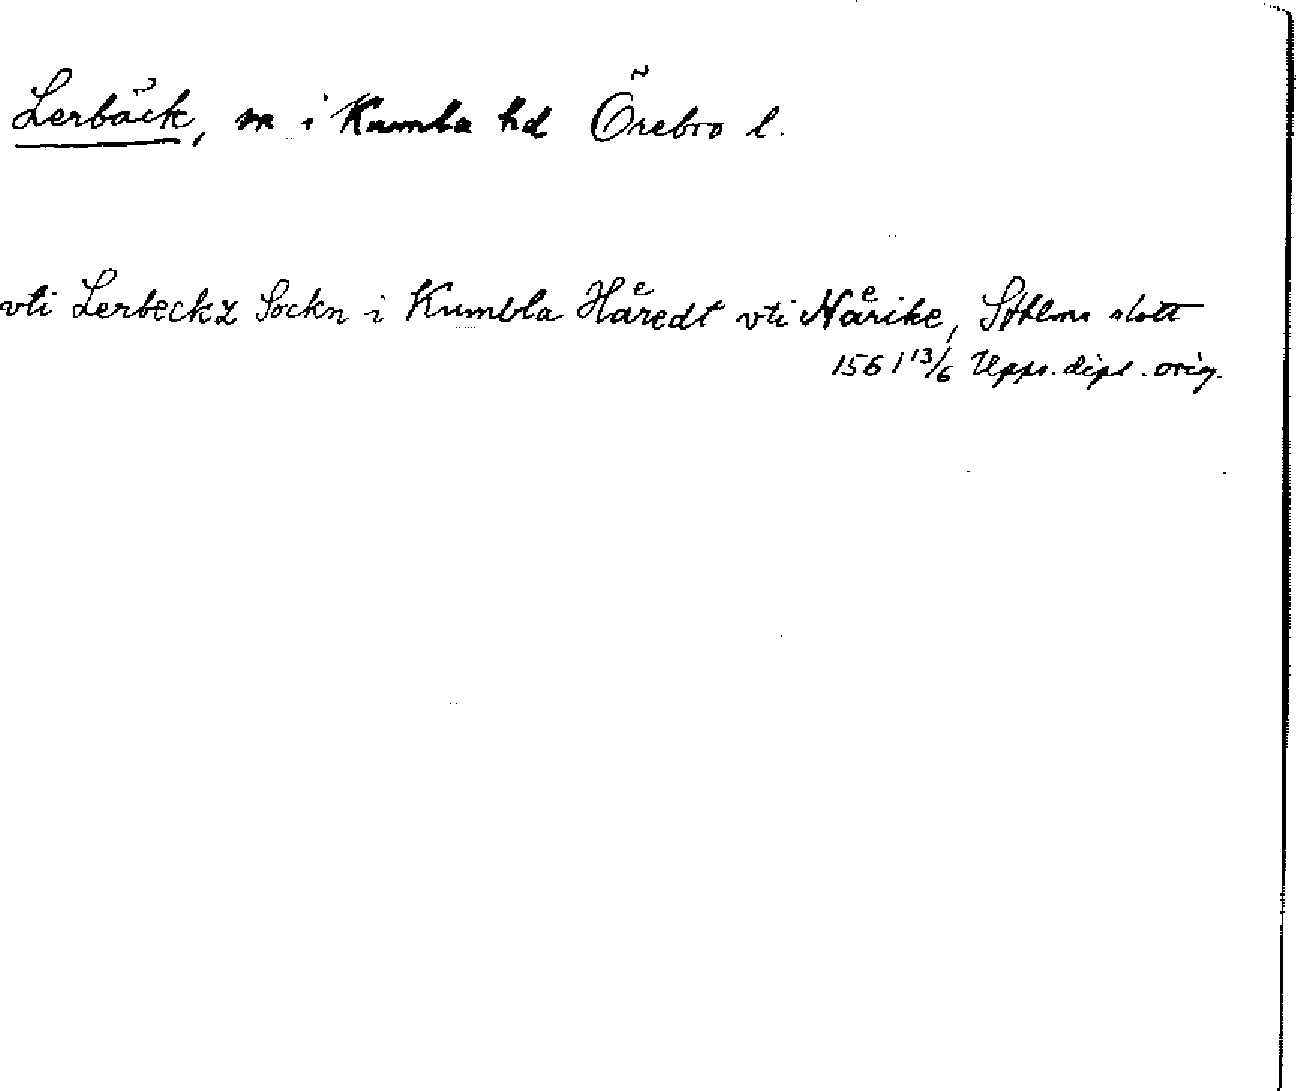 Lerbäck, sn i Kumla hd Örebro l.
vti Lerbeckz Sockn i Kumbla Håͤredt vti Nåͤrike, Sthlms slott
1561 13/6 Upps. dipl. orig.